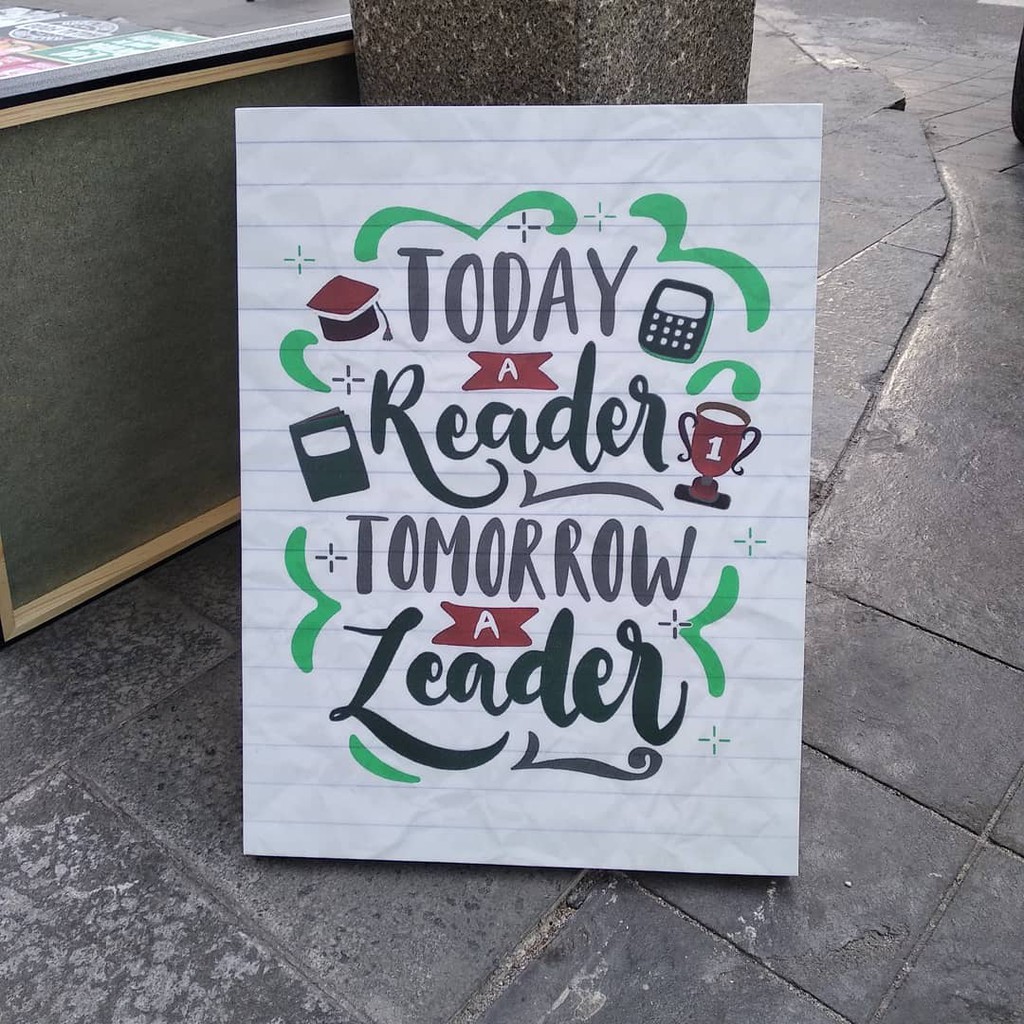 TODAY
A
Reader
1
TOMORROW
A
Leader